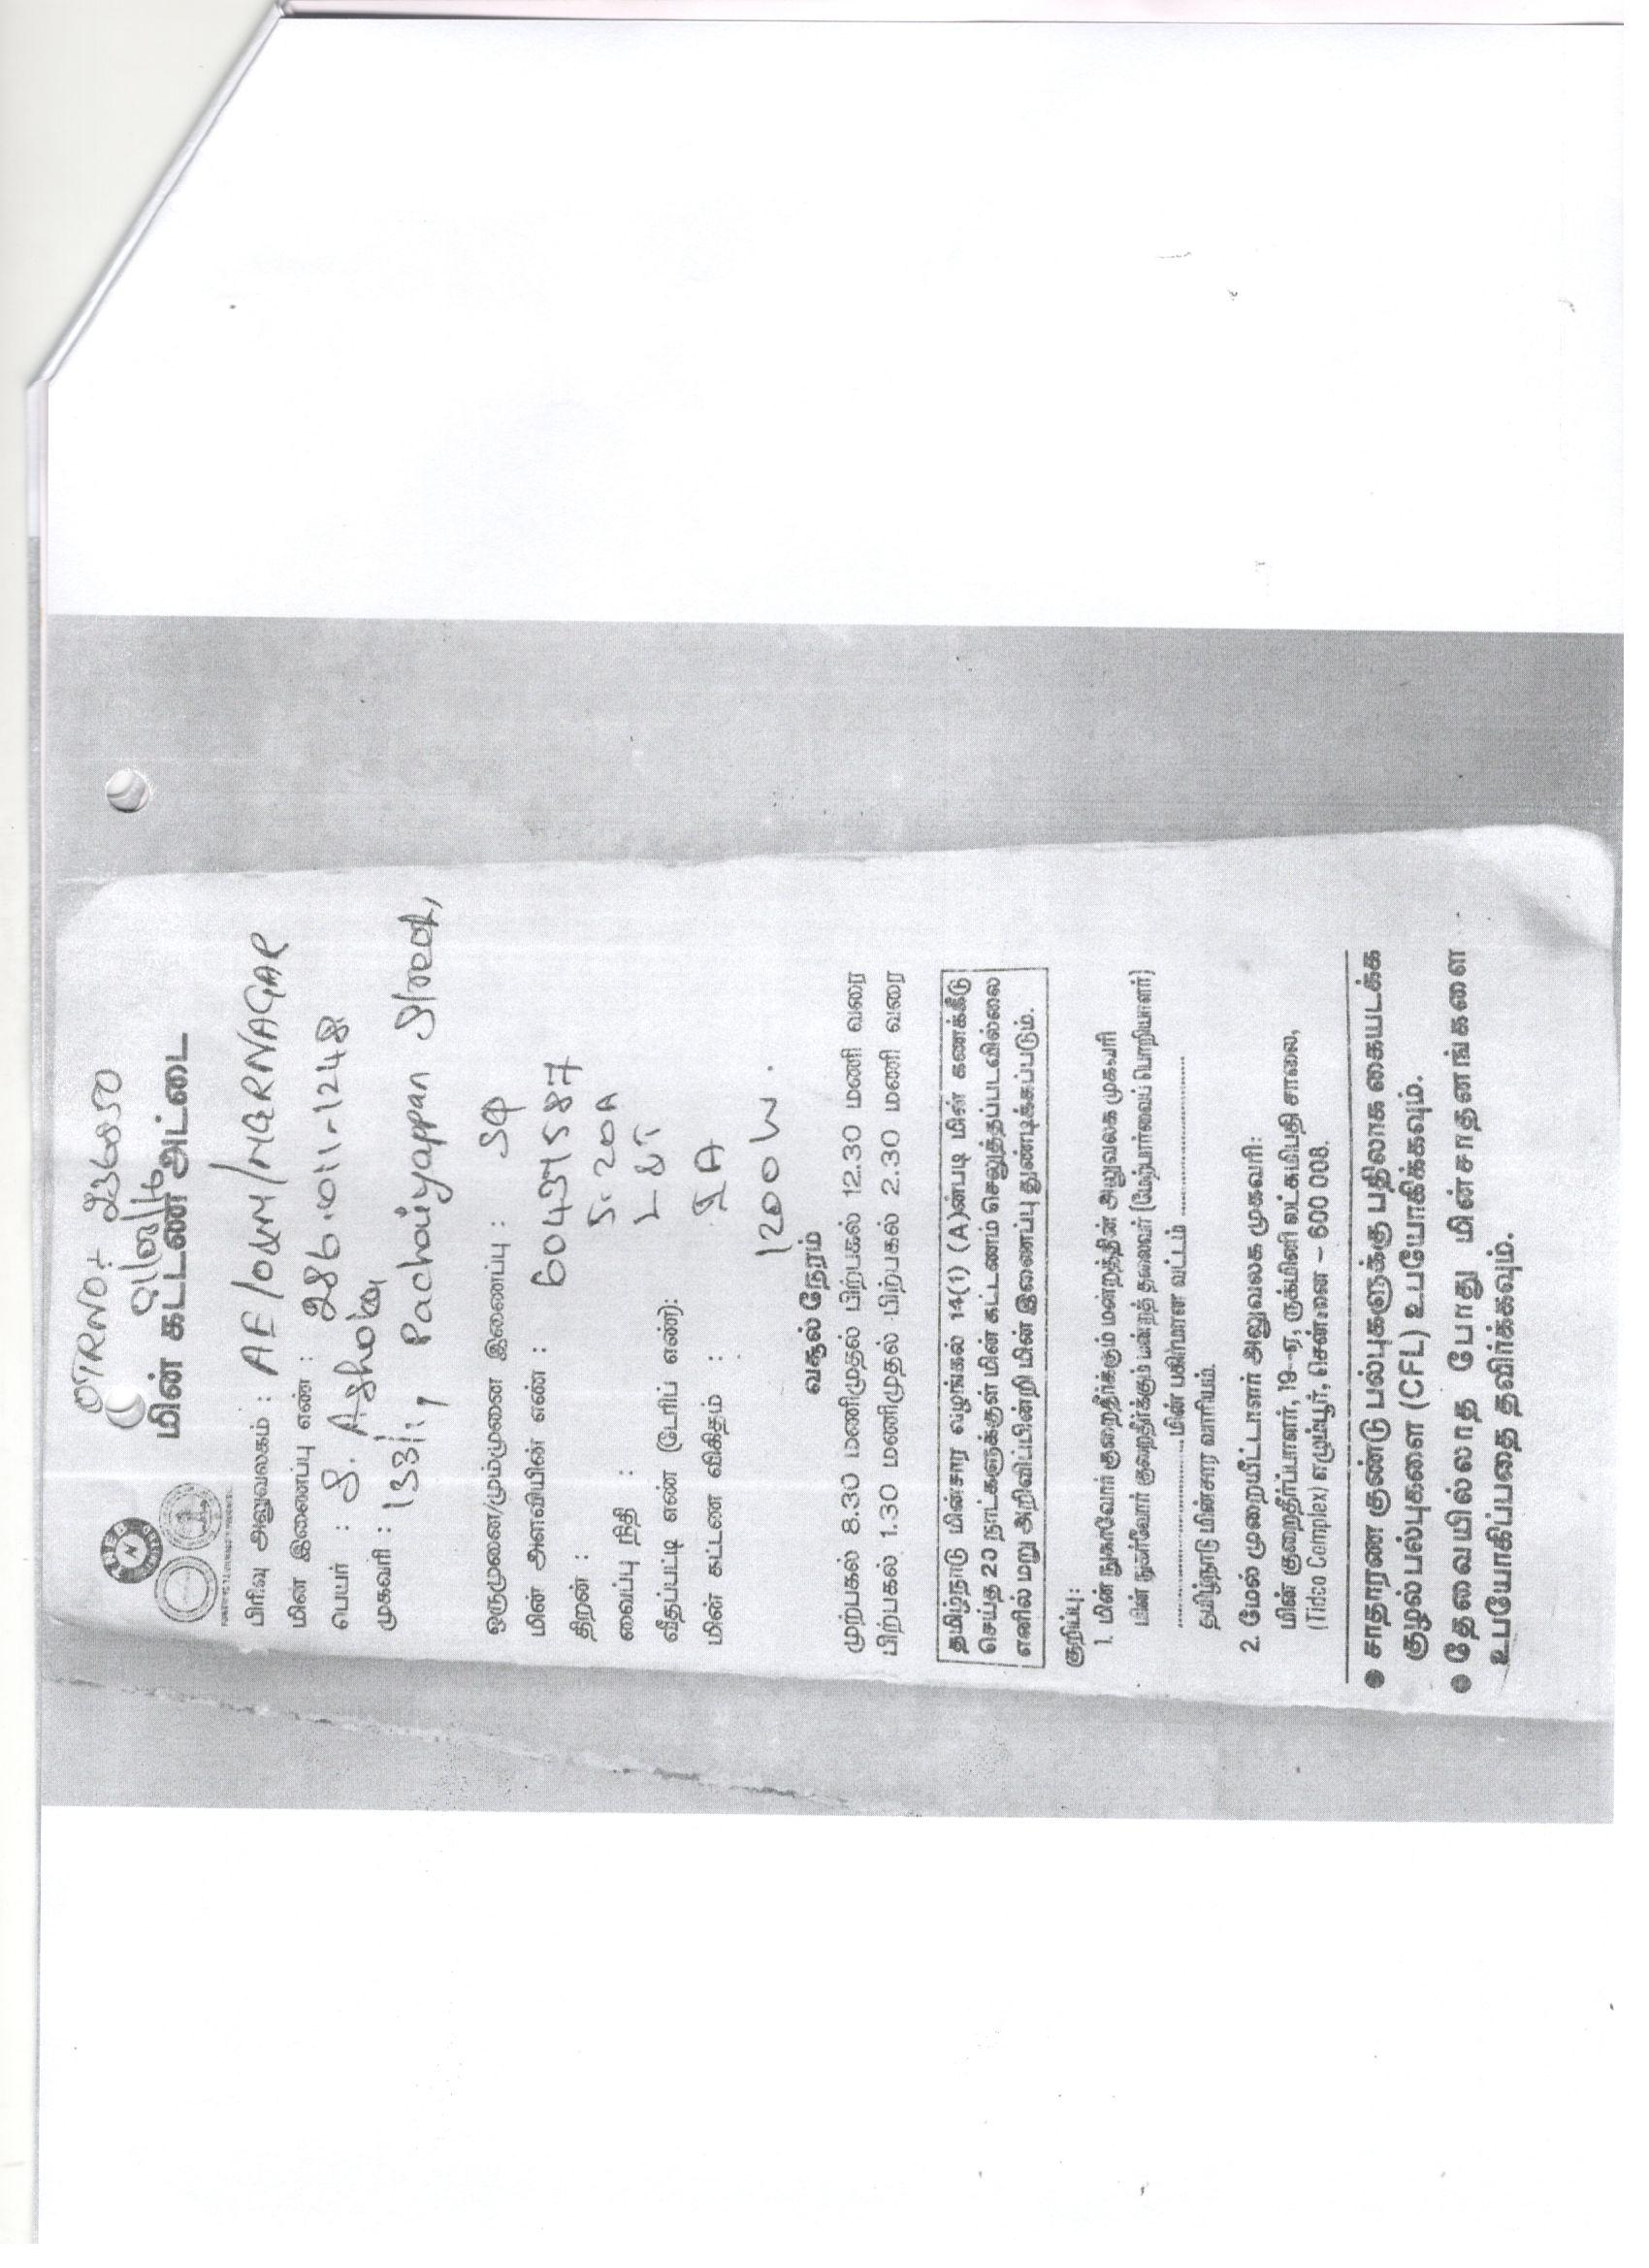 OTRNO:- 236050
01/01/16
மின் கட்டண அட்டை
பிரிவு அலுவலகம் : AE/O&M/MGRNAGAR
மின் இணைப்பு எண் : 286-011-1248
பெயர் : S. Ashok
முகவரி : 133/1, Pachaiyappan Street,
ஒருமுனை/மும்முனை இணைப்பு :
மின் அளவியின் எண் : 60437587
திறன் : 5-20A
வைப்பு நிதி : L&T
வீதப்பட்டி எண் (டேரிப் எண்):
மின் கட்டண விகிதம் : IA
1200W.
வசூல் நேரம்
முற்பகல் 8.30 மணிமுதல் பிற்பகல் 12.30 மணி வரை
பிற்பகல் 1.30 மணிமுதல் பிற்பகல் 2.30 மணி வரை
தமிழ்நாடு மின்சார வழங்கல் 14(1) (A)ன்படி மின் கணக்கீடு
செய்த 20 நாட்களுக்குள் மின் கட்டணம் செலுத்தப்படவில்லை
எனில் மறு அறிவிப்பின்றி மின் இணைப்பு துண்டிக்கப்படும்.
குறிப்பு:
1. மின் நுகர்வோர் குறைதீர்க்கும் மன்றத்தின் அலுவலக முகவரி
மின் நுகர்வோர் குறைதீர்க்கும் மன்றத் தலைவர் (மேற்பார்வைப் பொறியாளர்)
...................மின் பகிர்மான வட்டம் ...................
தமிழ்நாடு மின்சார வாரியம்.
2. மேல் முறையீட்டாளர் அலுவலக முகவரி:
மின் குறைதீர்ப்பாளர், 19-ஏ, ருக்மினி லட்சுமிபதி சாலை,
(Tidco Complex) எழும்பூர், சென்னை – 600 008.
● சாதாரண குண்டு பல்புகளுக்கு பதிலாக கையடக்க
குழல்பல்புகளை (CFL) உபயோகிக்கவும்.
● தேவையில்லாத போது மின்சாதனங்களை
உபயோகிப்பதை தவிர்க்கவும்.